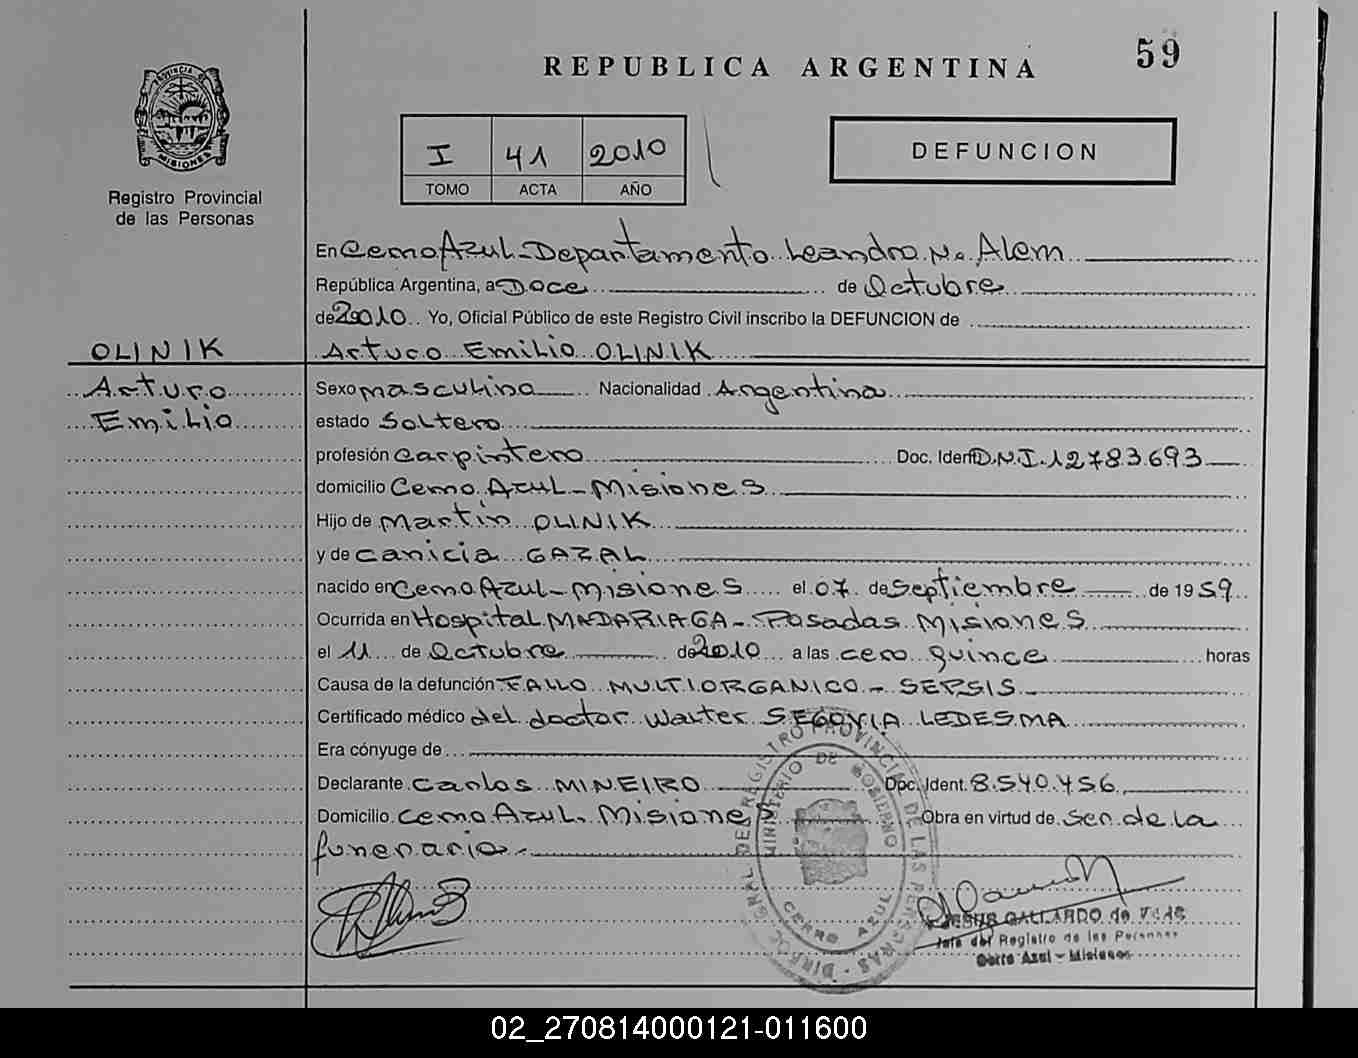 59
REPUBLICA ARGENTINA
PROVINCIA DE MISIONES
Registro Provincial
de las Personas
I 41 2010
TOMO ACTA AÑO
DEFUNCION
En Cerro Azul - Departamento Leandro N. Alem
República Argentina, a Doce de Octubre
de 2010 Yo, Oficial Público de este Registro Civil inscribo la DEFUNCION de
OLINIK Arturo Emilio OLINIK
Arturo Sexo masculino Nacionalidad Argentina
Emilio estado Soltero
profesión Carpintero Doc. Ident D.N.I. 12783.693
domicilio Cerro Azul - Misiones
Hijo de Martin OLINIK
y de canicia GAZAL
nacido en Cerro Azul - Misiones el 07 de Septiembre de 1959
Ocurrida en Hospital MADARIAGA - Posadas Misiones
el 11 de Octubre de 2010 a las cero quince horas
Causa de la defunción FALLO MULTIORGANICO - SEPSIS
Certificado médico del doctor Walter SEGOVIA LEDESMA
Era cónyuge de
Declarante Carlos MINEIRO Doc. Ident. 8.540.456
Domicilio Cerro Azul. Misiones Obra en virtud de ser de la
funeraria
DIREC. GRAL. DEL REGISTRO PROVINCIAL DE LAS PERSONAS
MINISTERIO DE GOBIERNO
CERRO AZUL
JESUS GALLARDO de
Jefe del Registro de las Personas
Cerro Azul - Misiones
02_270814000121-011600